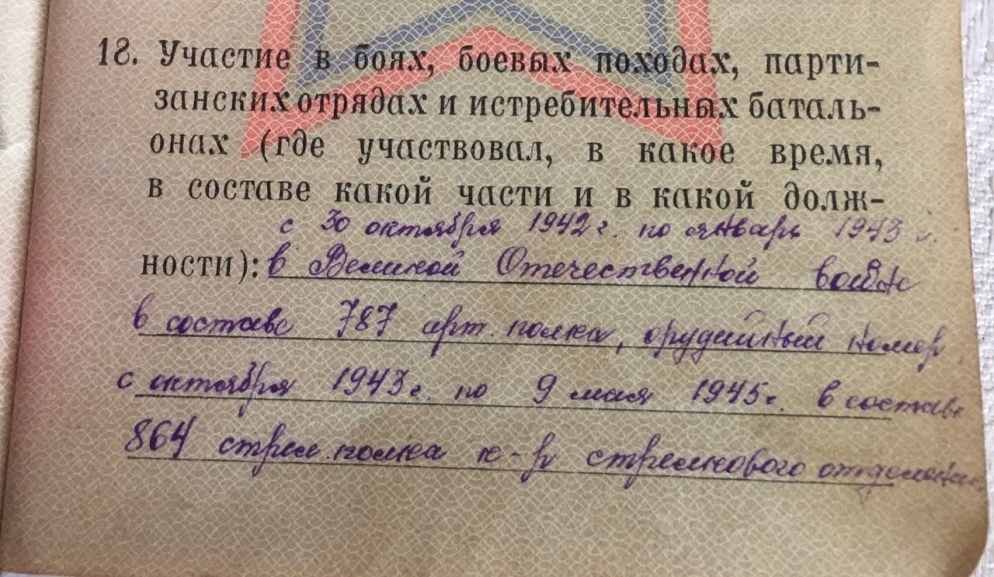 18. Участие в боях, боевых походах, парти-
занских отрядах и истребительных баталь-
онах (где участвовал, в какое время,
в составе какой части и в какой долж-
с 30 октября 1942 г. по январь 1943 г.
ности): в Великой Отечественной войне
в составе 787 арт. полка, орудийный номер
с октября 1943 г. по 9 мая 1945 г. в составе
864 стрел. полка к-р стрелкового отделения